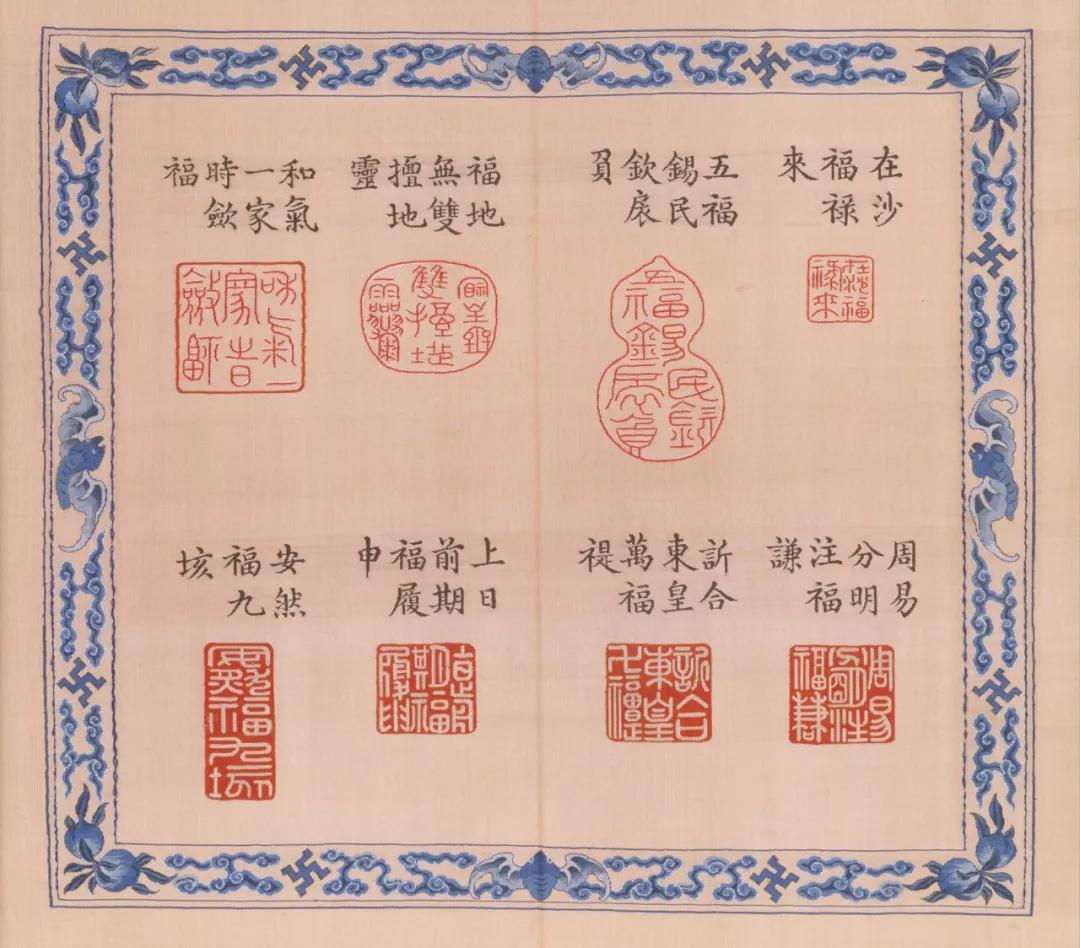 在沙
福祿
來
五福
錫民
欽扆
負
福地
無雙
擅地
靈
和氣
一家
時斂
福
周易
分明
注福
謙
訢合
東皇
萬福
禔
上日
前期
福履
申
安然
福九
垓